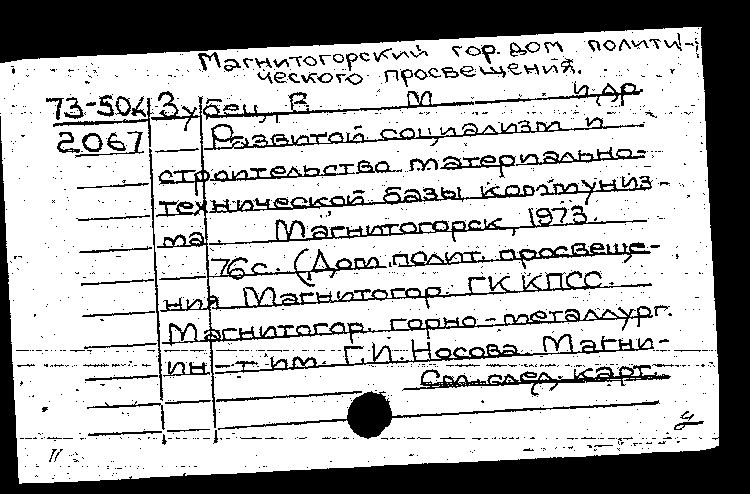 Магнитогорский гор. дом полити-
ческого просвещения.
73-504 Зубец, В М и др
2067 Развитой социализм и
строительство материально-
технической базы коммуниз-
ма. Магнитогорск, 1973.
76 с. (Дом полит. просвеще-
ния Магнитогор. ГК КПСС.
Магнитогор. горно-металлург.
ин-т им. Г.И. Носова. Магни-
См. след. карт.